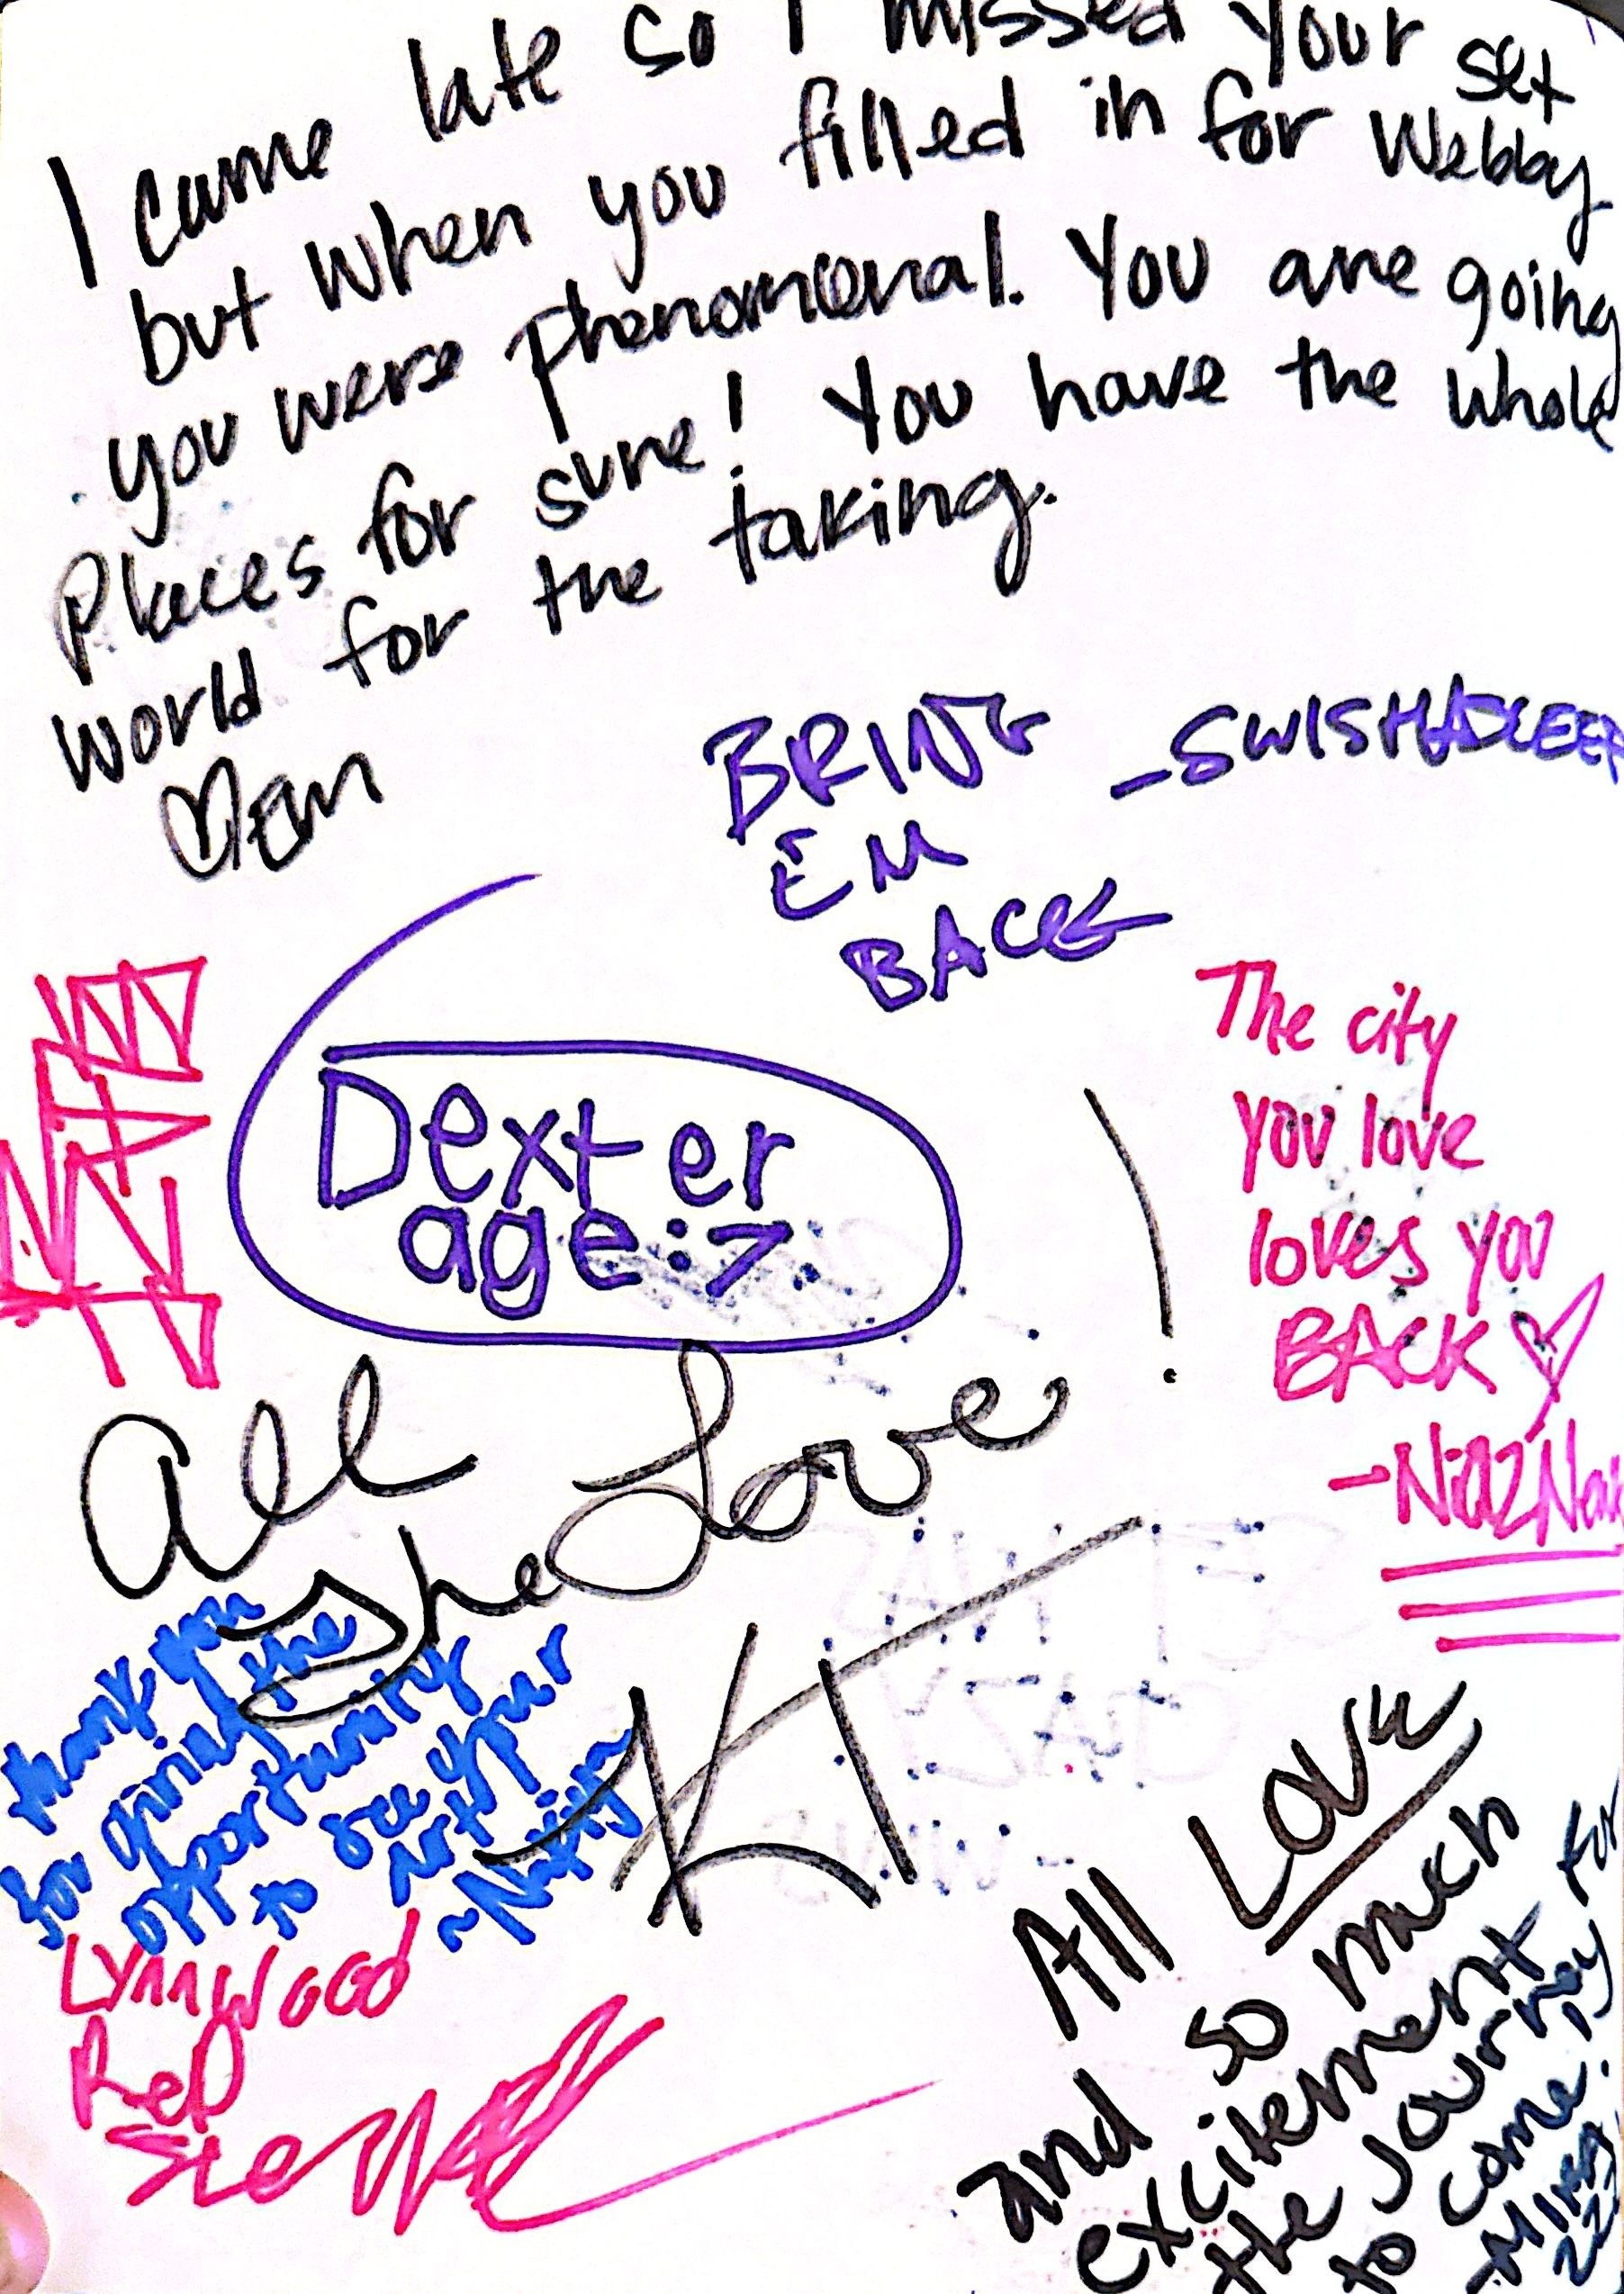 I came late so I missed your set
but when you filled in for Webby
you were phenomenal. You are going
places for sure! You have the whole
world for the taking.
♡ Em
BRING
EM
BACK
-SWISHADLEEP
Dexter
age: 7
The city
you love
loves you
BACK ♡
All
Love!
She
KT
thank you
for giving the
opportunity
to see your
art
LynnWood
Rep
All LOVE
and so much
excitement for
the journey
to come!